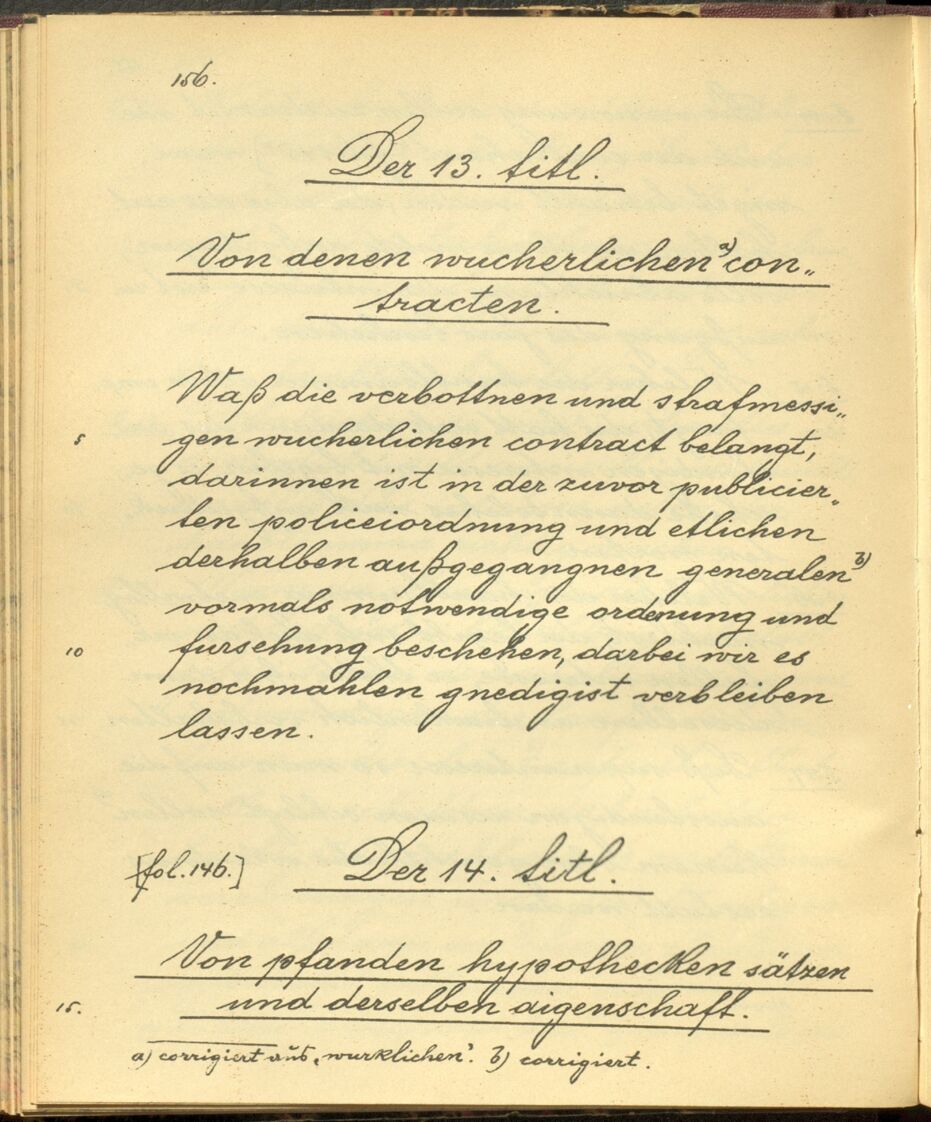 156.
Der 13. titl.
Von denen wucherlichen a) con„
tracten.
Waß die verbottnen und strafmessi„
5 gen wucherlichen contract belangt,
darinnen ist in der zuvor publicier„
ten policeiordnung und etlichen
derhalben außgegangnen generalen b)
vormals notwendige ordenung und
10 fursehung beschehen, darbei wir es
nochmahlen gnedigist verbleiben
lassen.
[fol. 146.] Der 14. titl.
Von pfanden hypothecken sätzen
15. und derselben aigenschaft.
a) corrigiert aus „wurklichen". b) corrigiert.